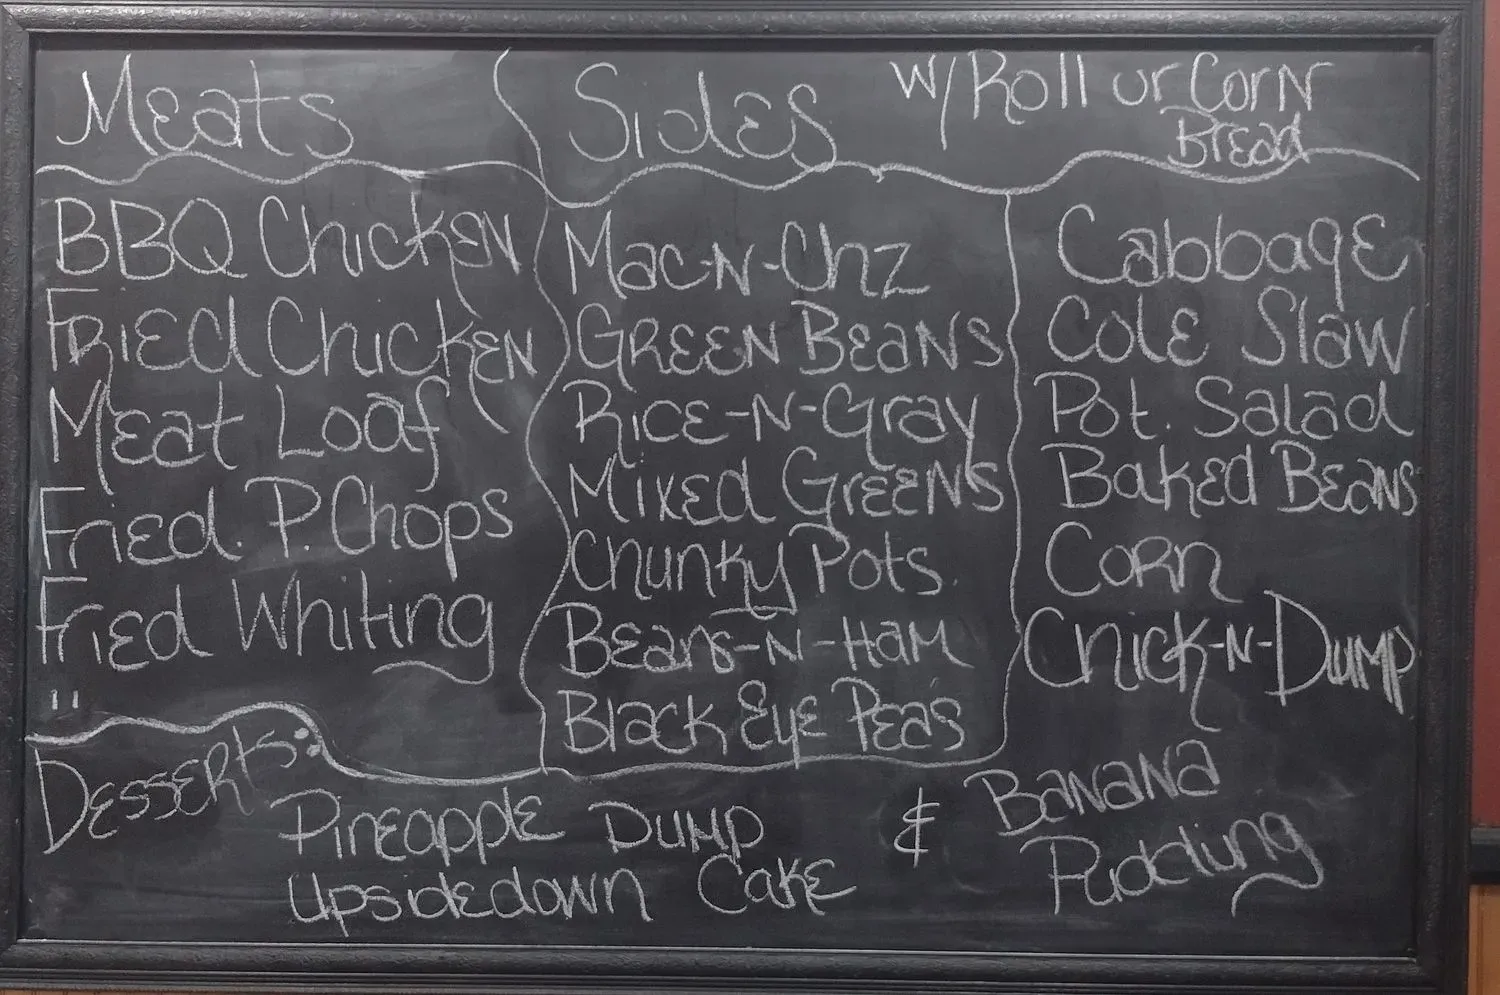 Meats
BBQ Chicken
Fried Chicken
Meat Loaf
Fried P. Chops
Fried Whiting
"
Sides w/ Roll or Corn
Bread
Mac-N-Chz
Green Beans
Rice-N-Gray
Mixed Greens
Chunky Pots.
Beans-N-Ham
Black Eye Peas
Cabbage
Cole Slaw
Pot. Salad
Baked Beans
Corn
Chick-N-Dump
Desserts:
Pineapple Dump
Upsidedown Cake
&
Banana
Pudding